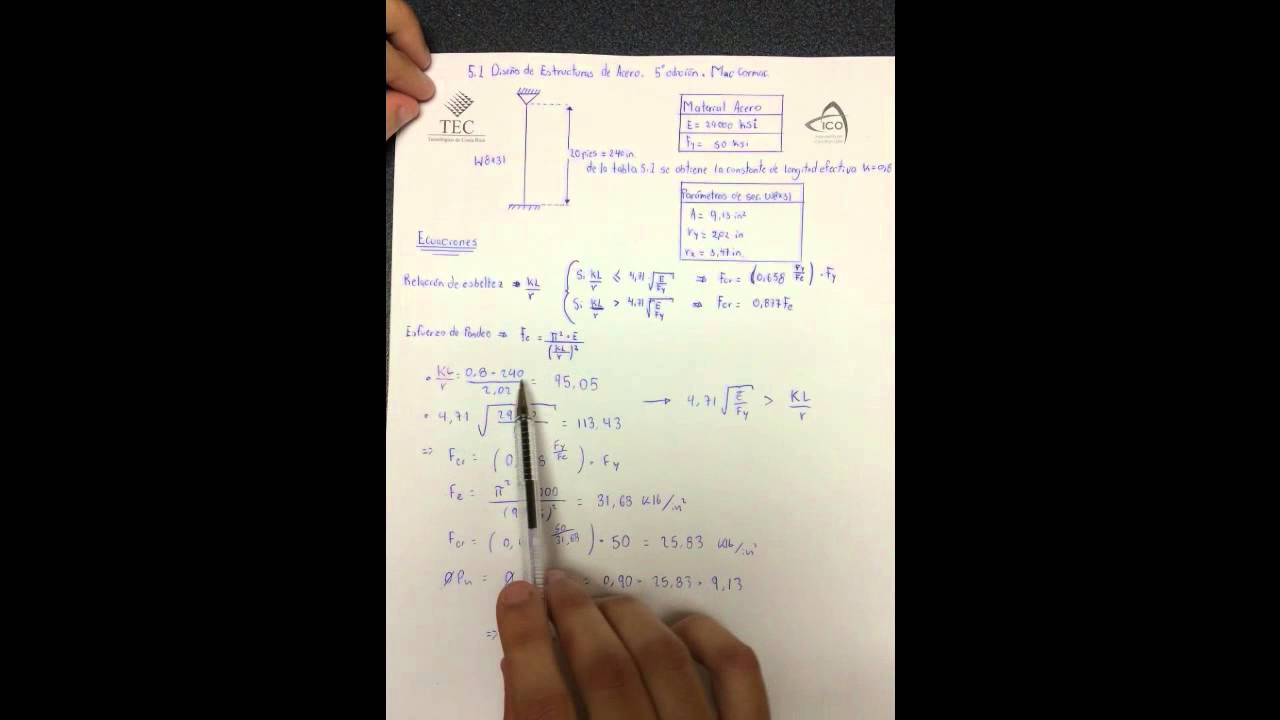 5.1 Diseño de Estructuras de Acero. 5ª edición. Mac Cormac.
TEC
Tecnológico de Costa Rica
CICO
W8x31
20 pies = 240 in.
Material Acero
E = 29000 ksi
Fy = 50 ksi
de la tabla 5.1 se obtiene la constante de longitud efectiva K=0,8
Parámetros de sec. W8x31
A = 9,13 in²
ry = 2,02 in
rx = 3,47 in.
Ecuaciones
Relación de esbeltez ⇒ KL/r
Si KL/r ≤ 4,71 √(E/Fy) ⇒ Fcr = (0,658^(Fy/Fe)) · Fy
Si KL/r > 4,71 √(E/Fy) ⇒ Fcr = 0,877Fe
Esfuerzo de Pandeo ⇒ Fe = π² · E / (KL/r)²
• KL/r = 0,8 · 240 / 2,02 = 95,05
→ 4,71 √(E/Fy) > KL/r
• 4,71 √ 29 = 113,43
⇒ Fcr = (0, 8^(Fy/Fe)) · Fy
Fe = π² 000 / (9 )² = 31,63 klb/in²
Fcr = (0, ^(50/31,63)) · 50 = 25,83 klb/in²
ØPn = Ø = 0,90 · 25,83 · 9,13
⇒